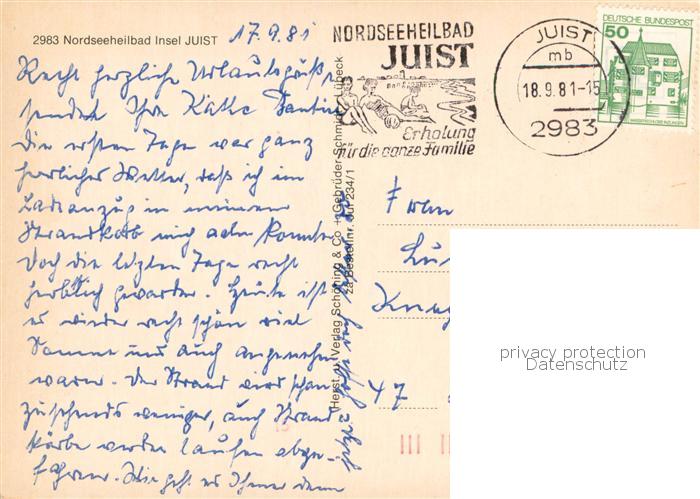 2983 Nordseeheilbad Insel JUIST
17.9.81
Recht herzliche Urlaubsgrüße
sendet Ihre Käthe
Die ersten Tage war ganz
herrliches Wetter, daß ich im
Badeanzug in meinem
Strandkorb mich aalen konnte
Doch die letzten Tage recht
herbstlich geworden. Heute ist
es wieder recht schön viel
Sonne und auch angenehm
warm. Der Strand wird schon
zusehends weniger, auch Strand
körbe werden laufen abge-
fahren. Wie geht es Ihnen denn
jetzt?
Herst. u. Verlag Schöning & Co + Gebrüder Schmidt, Lübeck
Bestellnr. Jui 234/1
NORDSEEHEILBAD
JUIST
Erholung
für die ganze Familie
JUIST
mb
18.9.81-15
2983
DEUTSCHE BUNDESPOST
50
Frau
47
privacy protection
Datenschutz